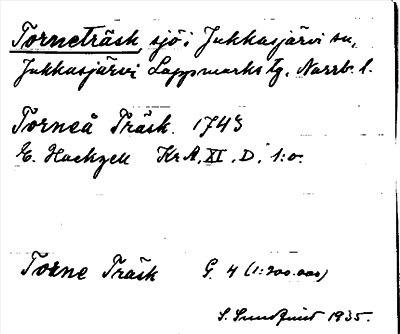 Torneträsk, sjö i Jukkasjärvi sn,
Jukkasjärvi Lappmarks tg, Norrb. l.
Torneå Träsk. 1743
E. Hackzell KrA, XI, D, 1:o.
Torne Träsk G. 4 (1:200.000)
S. Sundquist 1935.